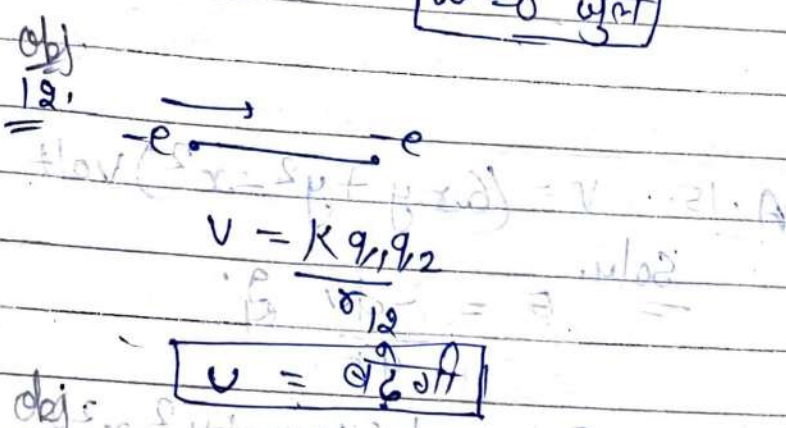 w = 0 जूल
Obj.
12.
-e -e
U = K q1q2
r12
U = बढ़ेगी
Obj: